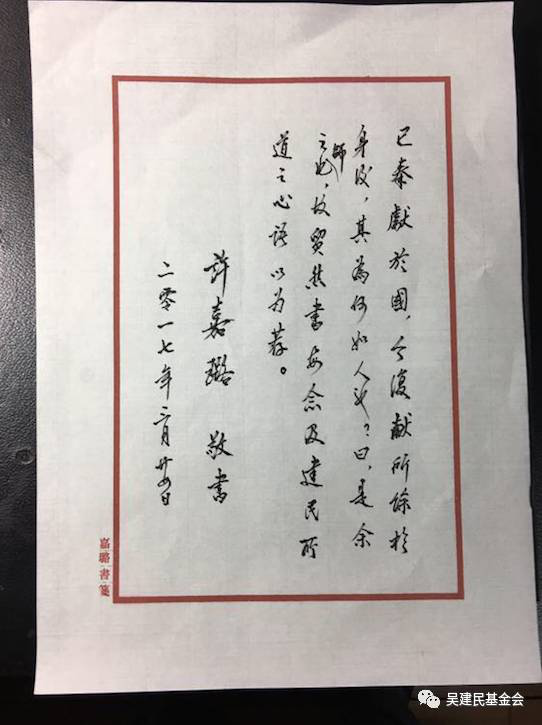 已奉獻於國，今復獻所餘於
身後，其為何如人也？曰，是余
之師也，故貿然書每念及建民所
道之心語以为荐。
許嘉璐 敬書
二零一七年二月廿日
嘉璐書箋
吴建民基金会